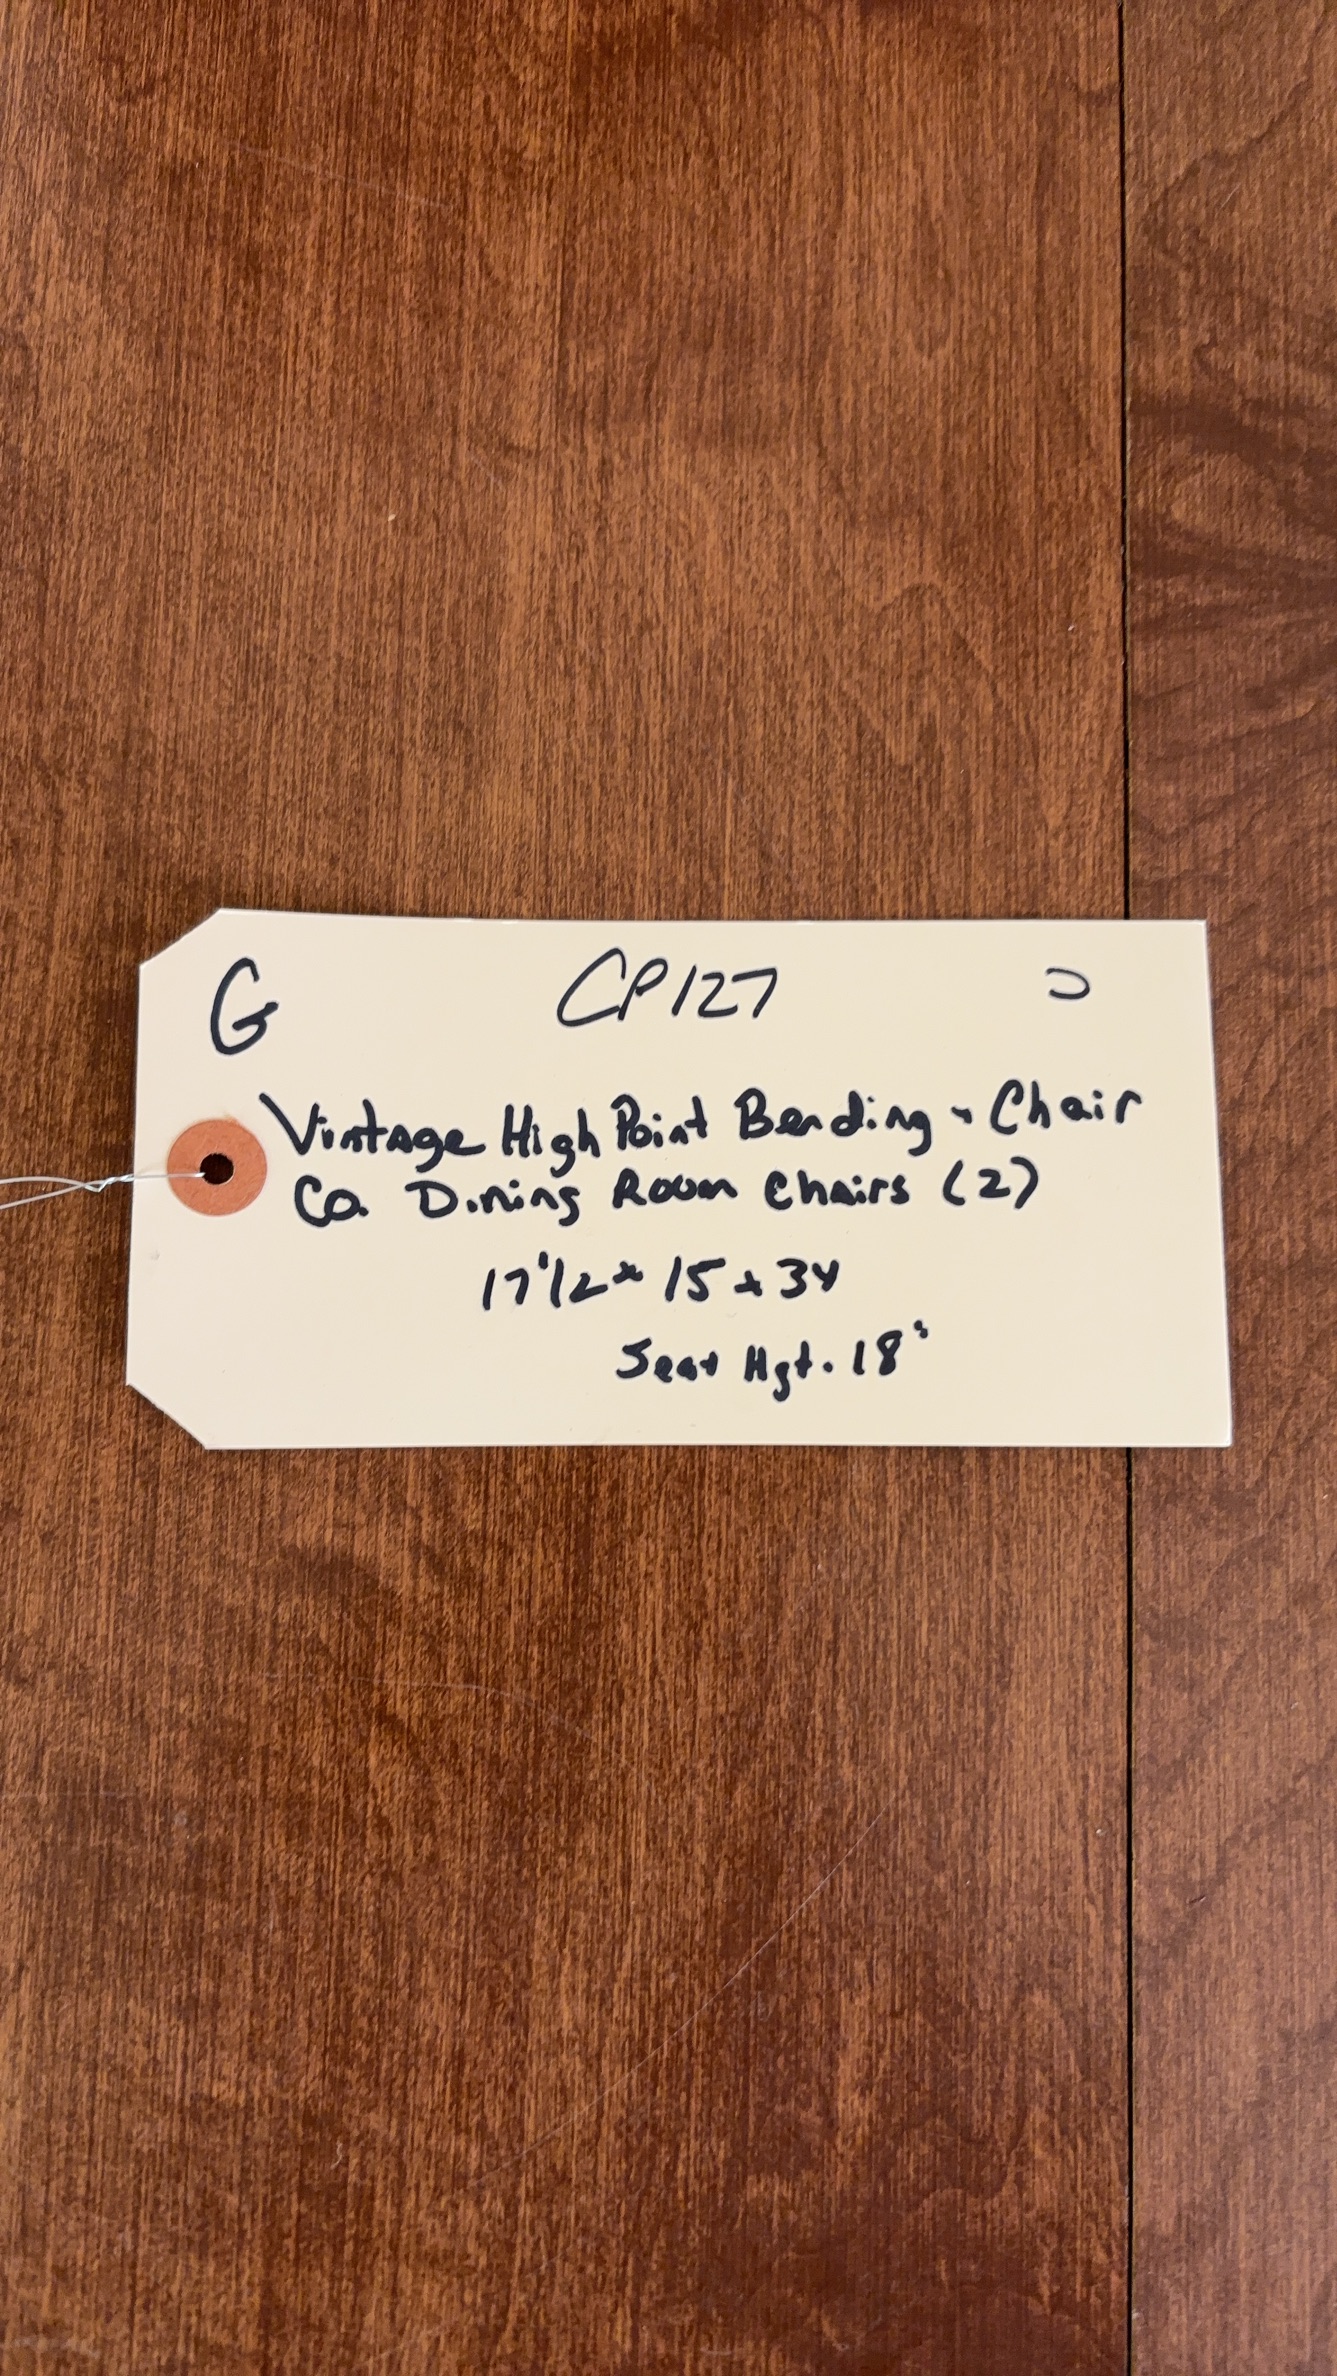 G CP127
Vintage High Point Bending + Chair
Co. Dining Room Chairs (2)
17 1/2 x 15 x 34
Seat Hgt. 18"